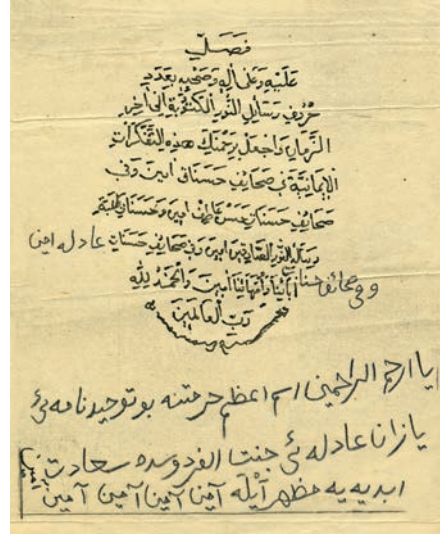 فَصَلِّ
عَلَيْهِ وَعَلٰى اٰلِهِ وَصَحْبِهِ بِعَدَدِ
حُرُوفِ رَسَائِلِ النُّورِ الْمَكْتُوبَةِ اِلٰى اٰخِرِ
الزَّمَانِ وَاجْعَلْ بِرَحْمَتِكَ هٰذِهِ التَّفَكُّرَاتِ
الْاِيمَانِيَّةَ فِى صَحَائِفِ حَسَنَاتِى اٰمِينَ وَفِى
صَحَائِفِ حَسَنَاتِ حَسَنْ عَاطِفْ اٰمِينَ وَحَسَنَاتِ طَلَبَةِ
رِسَالَةِ النُّورِ الصَّادِقِينَ اٰمِينَ وَفِى صَحَائِفِ حَسَنَاتِ عادله امين
وفى صحائف حسنات اٰبَائِنَا وَاُمَّهَاتِنَا اٰمِينَ وَالْحَمْدُ لِلّٰهِ
رَبِّ الْعَالَمِينَ
يا ارحم الراحمين اسم اعظم حرمتنه بو توحيدنامه ئى
يازان عادله ئى جنت الفردوسده سعادت
ابديه يه مظهر آيْلَه آمين آمين آمين آمين